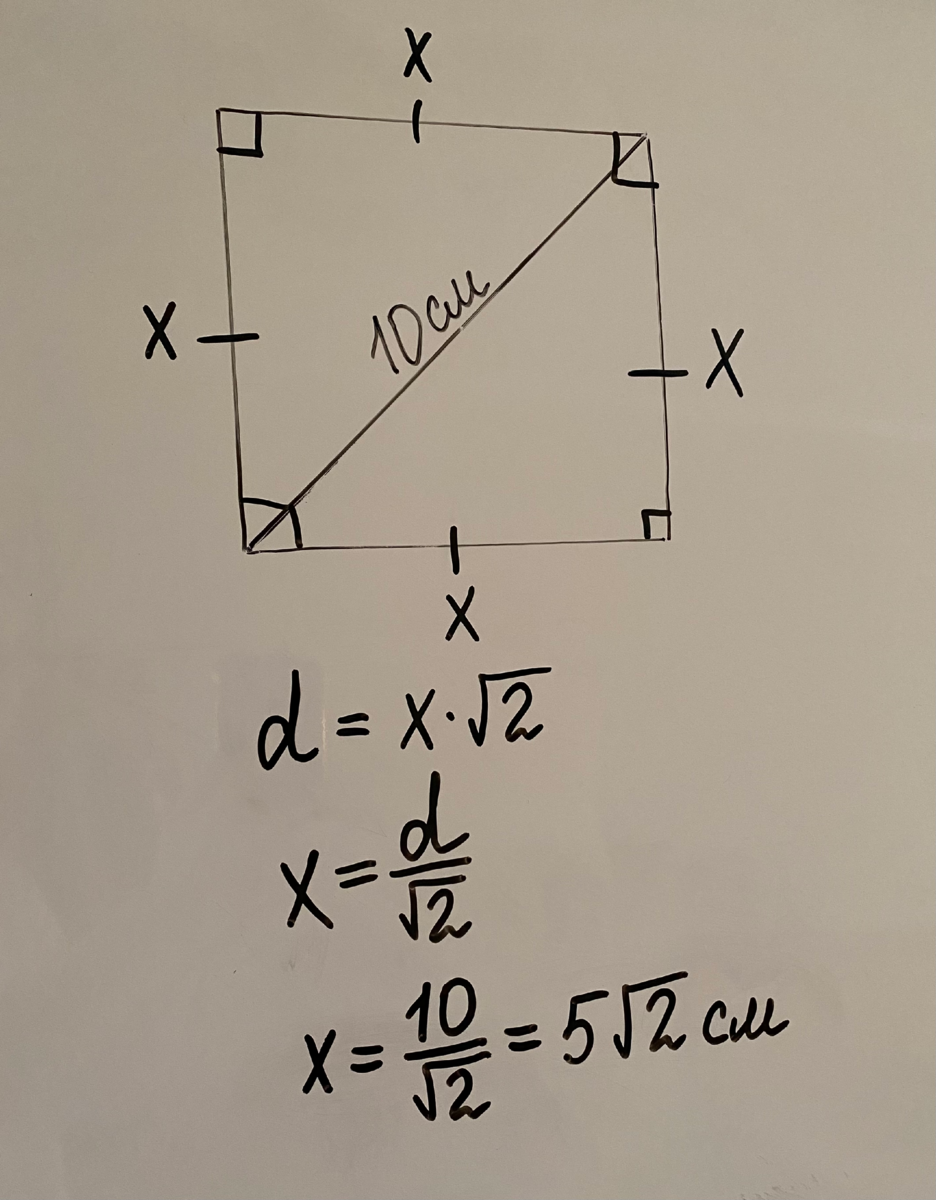 x
x
10 см
x
x
d = x·√2
x = d/√2
x = 10/√2 = 5√2 см